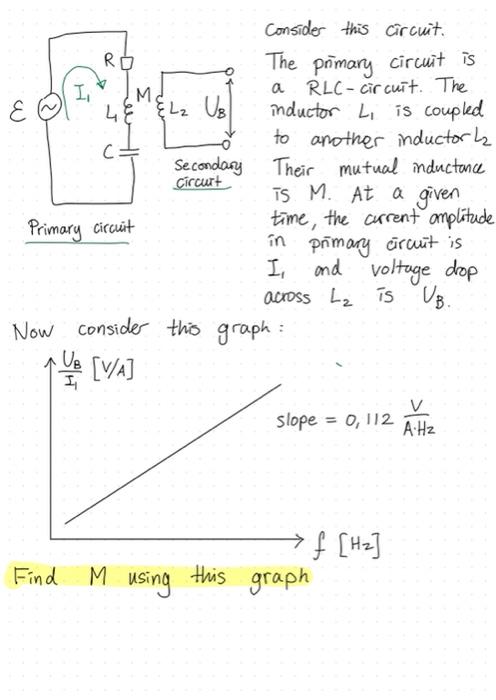 Consider this circuit.
The primary circuit is
a RLC-circuit. The
inductor L₁ is coupled
to another inductor L₂
Their mutual inductance
is M. At a given
time, the current amplitude
in primary circuit is
I₁ and voltage drop
across L₂ is U_B.
R
M
ε
I₁
L₁
L₂
U_B
C
Secondary
circuit
Primary circuit
Now consider this graph:
U_B/I₁ [V/A]
slope = 0,112 V/A·Hz
f [Hz]
Find M using this graph